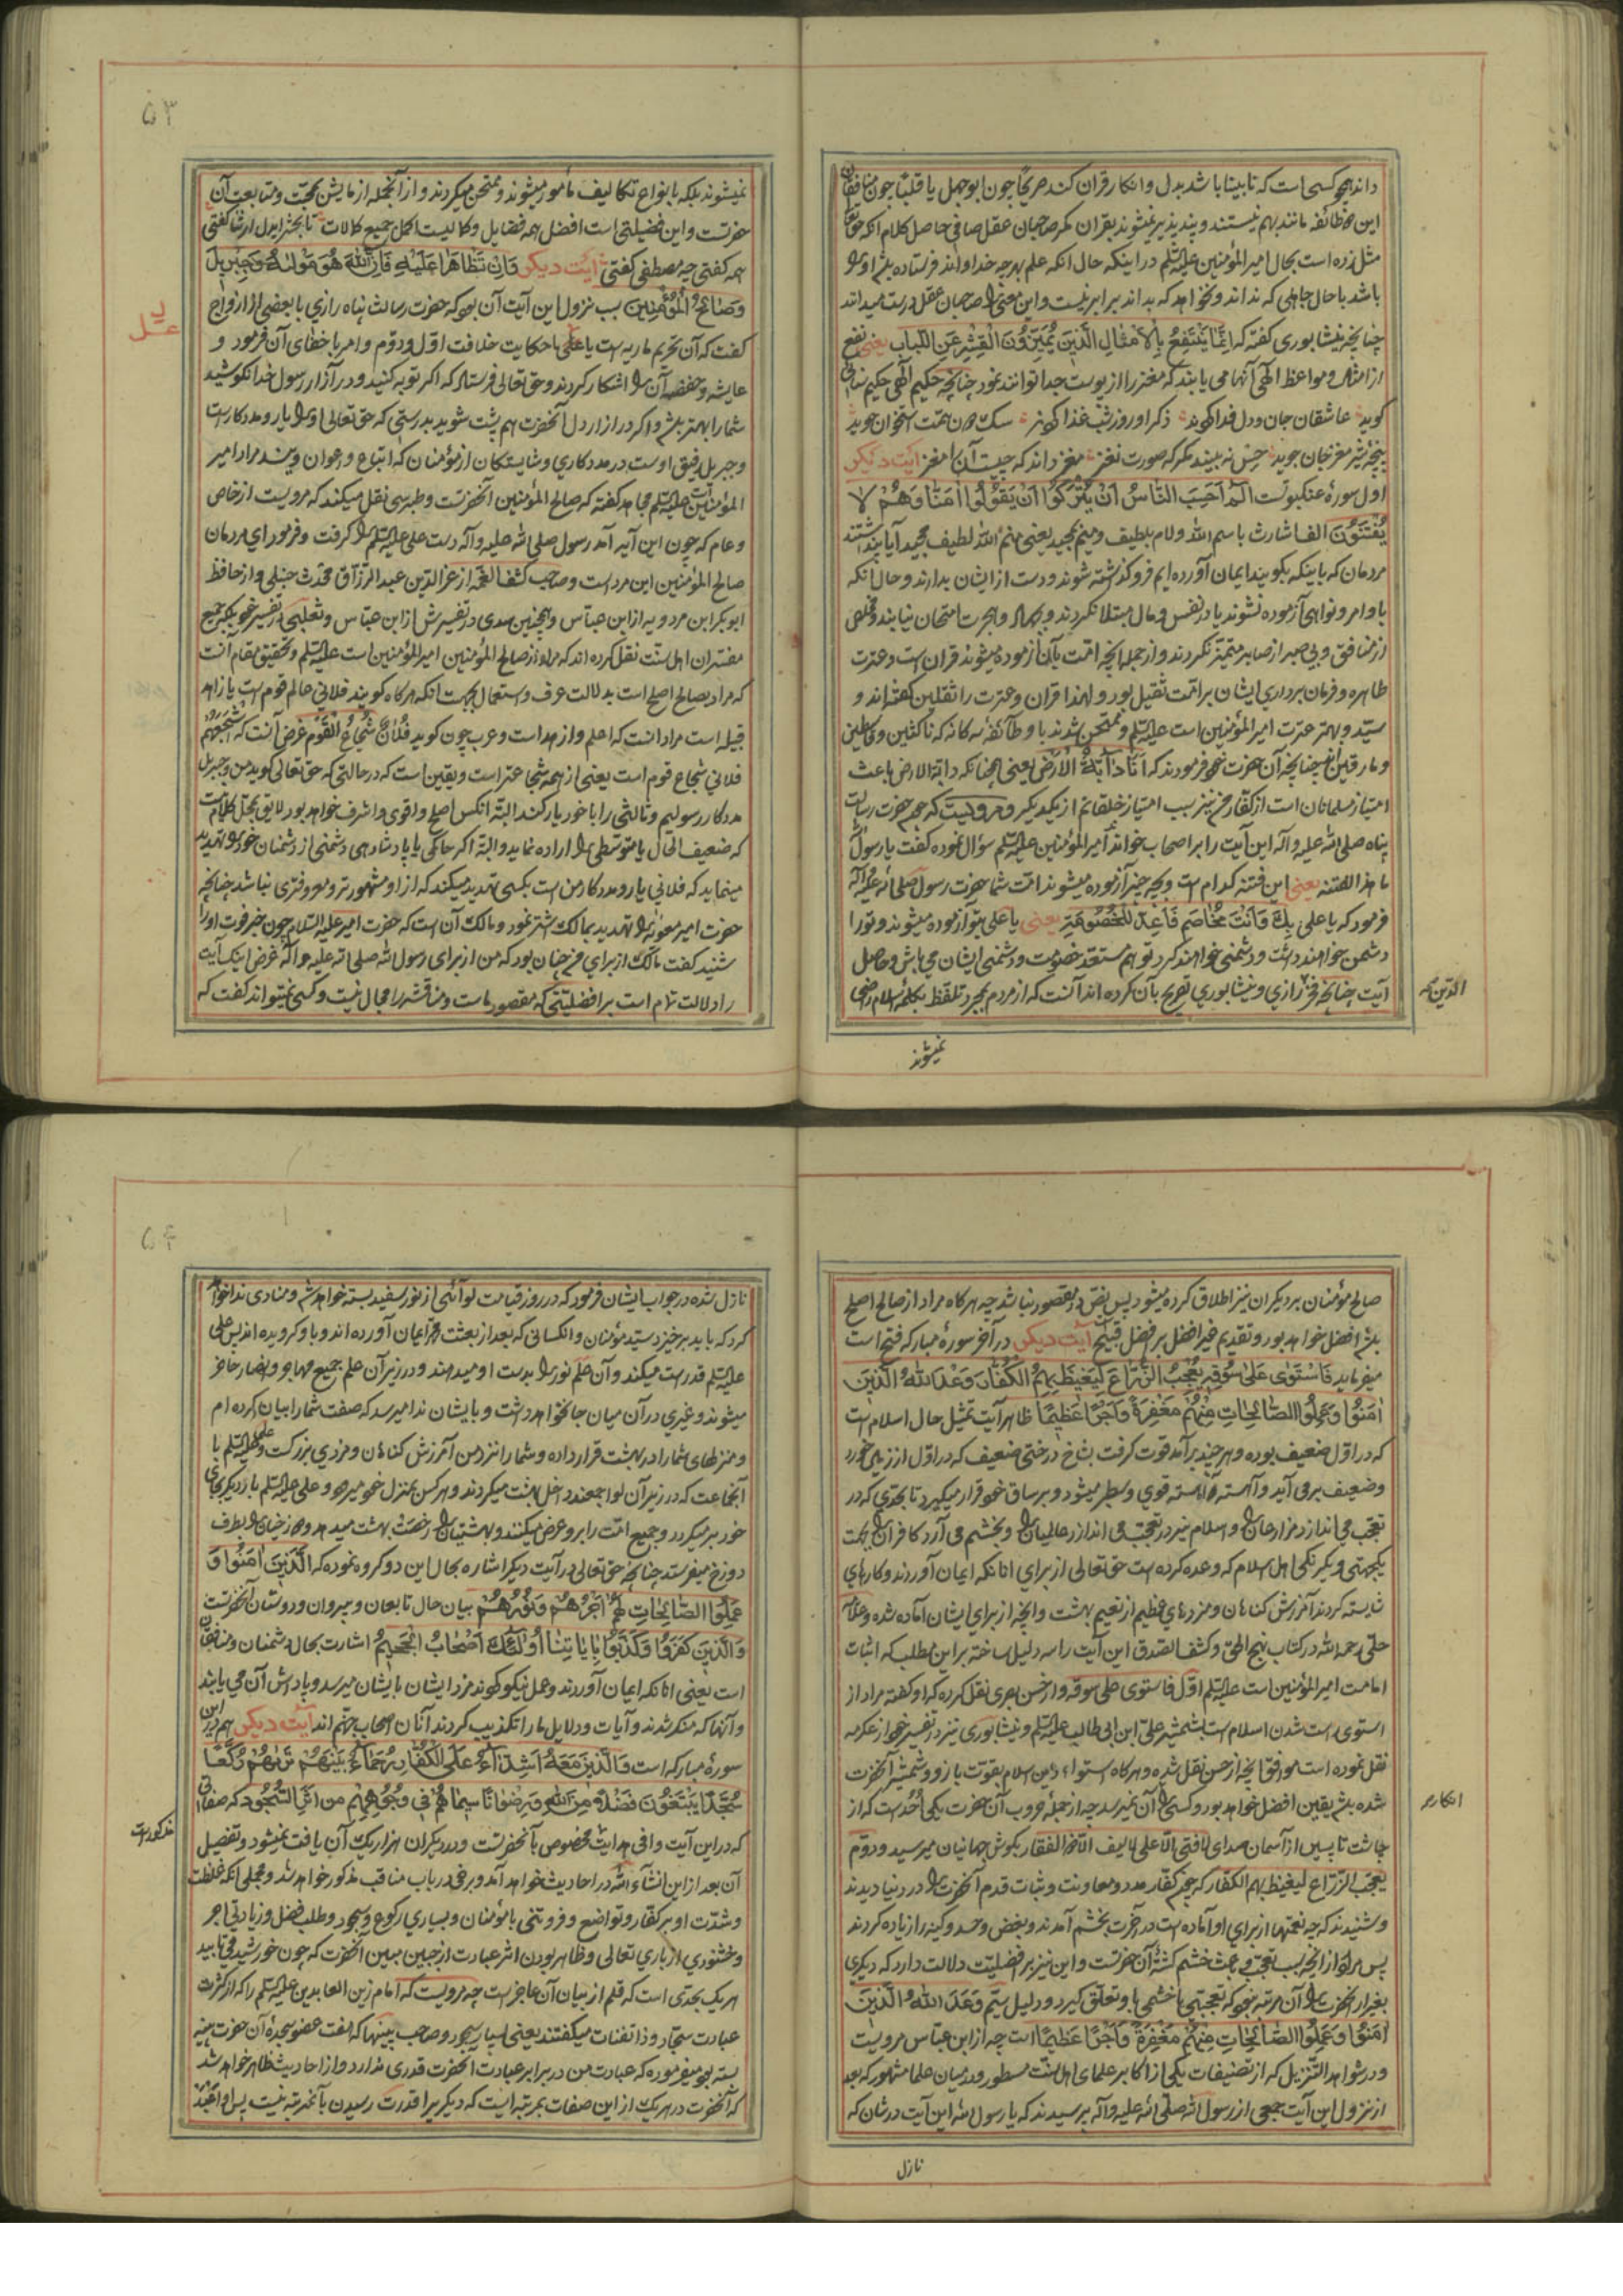 داند همچو کسی است که نابینا باشد بدل و انکار قران کند صریحا چون ابوجهل یا قلبا چون منافقان
این هر دو طائفه مانند بهم نیستند و پند پذیر نمیشوند بقران مکر صاحبان عقل صافی حاصل کلام آنکه حق تعالی
مثل زده است بحال امیر المؤمنین علیه السلم در اینکه حال آنکه علم بهر چه خدا و اند فرستاده باشد او را
باشد با حال جاهلی که نداند و نخواهد که بداند برابر نیست و این معنی را صاحبان عقل درست میدانند
چنانچه نیشابوری کفته که اِنَّمَا يَنْتَفِعُ بِالْاَمْثَالِ الَّذِينَ يُمَيِّزُونَ الْقِشْرَ عَنِ اللُّبَابِ یعنی نفع
از امثال و مواعظ الهی آنها می یابند که مغز را از پوست جدا توانند نمود چنانچه حکیم الهی حکیم سنائی
کوید عاشقان جان و دل فدا کردند ذکر او روز و شب غذا کردند سک دون همت استخوان جوید
پنجه شیر مغز جان جوید حس نه بیند مکر که صورت نغز مغز داند که چیست آن را مغز آیت دیکر
اول سورهٔ عنکبوتست الٓمٓ اَحَسِبَ النَّاسُ اَنْ يُتْرَكُوا اَنْ يَقُولُوا اٰمَنَّا وَهُمْ لَا
يُفْتَنُونَ الف اشارت باسم الله و لام بلطیف و میم بمجید یعنی منم الله لطیف مجید آیا پنداشتند
مردمان که باینکه بکویند ایمان آورده ایم فرو کذاشته شوند و دست از ایشان بدارند و حال آنکه
باوامر و نواهی آزموده نشوند یا در نفس و مال مبتلا نکردند و بجهاد و هجرت امتحان نیابند و مخلص
از منافق و بی صبر از صابر متمیز نکردند و از جمله آنچه امت بآن آزموده میشوند قران است و عترت
طاهره و فرمان برداری ایشان بر امت ثقیل بود و لهذا قران و عترت را ثقلین کفته اند و
سید و بهتر عترت امیر المؤمنین است علیه السلم و ممتحن شدند باو طائفهٔ سه کانه که ناکثین و قاسطین
و مارقین اند چنانچه آن حضرت خود فرمودند که اَنَا دَابَّةُ الْاَرْضِ یعنی همچنانکه دابة الارض باعث
امتیاز مسلمانان است از کفار من نیز سبب امتیاز خلقانم از یکدیکر و مرویست که چون حضرت رسالت
پناه صلی الله علیه و آله این آیت را بر اصحاب خواند امیر المؤمنین علیه السلم سؤال نموده کفت یا رسول الله
ما هذا الفتنه یعنی این فتنه کدام است و بچه چیز آزموده میشوند امت شما حضرت رسول صلی الله علیه و آله
فرمود که یا علی بِكَ وَاَنْتَ مُخَاصَمٌ فَاَعِدَّ لِلْخُصُومَةِ یعنی یا علی بتو آزموده میشوند و تو را
دشمن خواهند داشت و دشمنی خواهند کرد تو هم مستعد خصومت و دشمنی ایشان می باش و حاصل
آیت چنانچه فخر رازی و نیشابوری تصریح بآن کرده اند آنست که از مردم بمجرد تلفظ بکلمهٔ اسلام راضی
الدین صح
نمیشوند
۵۳
نمیشوند بلکه بانواع تکالیف مأمور میشوند و ممتحن میکردند و از آنجمله آزمایش بمحبت و متابعت آن
حضرتست و این فضیلتی است افضل همه فضایل و کمالیست اکمل جمیع کمالات تا بحشر ای دل ار ثنا کفتی
همه کفتی چو مصطفی کفتی آیت دیکر وَاِنْ تَظَاهَرَا عَلَيْهِ فَاِنَّ اللّٰهَ هُوَ مَوْلٰيهُ وَجِبْرِيلُ
وَصَالِحُ الْمُؤْمِنِينَ سبب نزول این آیت آن بود که حضرت رسالت پناه رازی با بعضی از ازواج
کفت که آن تحریم ماریه است یا حکایت خلافت اول و دوم و امر باخفای آن فرمود و
عایشه و حفصه آن را اشکار کردند و حق تعالی فرستاد که اکر توبه کنید و در آزار رسول خدا نکوشید
شما را بهتر باشد و اکر در آزار دل آنحضرت هم پشت شوید بدرستی که حق تعالی او را یار و مددکار است
و جبریل رفیق اوست در مددکاری و شایستکان از مؤمنان که اتباع و اعوان ویند مراد امیر
المؤمنین است علیه السلم مجاهد کفته که صالح المؤمنین آنحضرتست و طبرسی نقل میکند که مرویست از خاص
و عام که چون این آیه آمد رسول صلی الله علیه و آله دست علی علیه السلم را کرفت و فرمود ای مردمان
صالح المؤمنین این مرد است و صاحب کشف الغمه از عز الدین عبد الرزاق محدث حنبلی و از حافظ
ابو بکر ابن مردویه از ابن عباس و همچنین سدی در تفسیرش از ابن عباس و ثعلبی در تفسیر خود بلکه جمیع
مفسران اهل سنت نقل کرده اند که مراد از صالح المؤمنین امیر المؤمنین است علیه السلم و تحقیق مقام آنست
که مراد بصالح اصلح است بدلالت عرف و استعمال بجهت آنکه هر کاه کویند فلانی عالم قوم است یا زاهد
قبیله است مراد آنست که اعلم و ازهد است و عرب چون کوید فُلَانٌ شُجَاعُ الْقَوْمِ غرض آنست که اَشْجَعُهُمْ
فلانی شجاع قوم است یعنی از همه شجاعتر است و یقین است که در حالتی که حق تعالی کوید من و جبریل
مددکار رسولیم و ثالثی را با خود یار کند البته آنکس اصلح و اقوی و اشرف خواهد بود لایق بمحل کلام نیست
که ضعیف الحال یا متوسطی را اراده نماید و البته اکر حاکمی یا پادشاهی دشمنی از دشمنان خود را تهدید
مینماید که فلانی یار و مددکار من است بکسی تهدید میکند که از او مشهورتر و معروفتری نباشد چنانچه
حضرت امیر معویه را تهدید بمالک اشتر نمود و مالک آن است که حضرت امیر علیه السلام چون خبر فوت او را
شنید کفت مالک از برای من چنان بود که من از برای رسول الله صلی الله علیه و آله غرض اینکه آیت
را دلالت تمام است بر افضلیتی که مقصود ماست و مناقشه را مجال نیست و کسی نمیتواند کفت که
صالح مؤمنان بر دیکران نیز اطلاق کرده میشود پس نص در مقصود نباشد چه هر کاه مراد از صالح اصلح
باشد افضل خواهد بود و تقدیم غیر افضل بر افضل قبیح آیت دیکر در آخر سورهٔ مبارکه فتح است
میفرماید فَاسْتَوٰى عَلٰى سُوقِهِ يُعْجِبُ الزُّرَّاعَ لِيَغِيظَ بِهِمُ الْكُفَّارَ وَعَدَ اللّٰهُ الَّذِينَ
اٰمَنُوا وَعَمِلُوا الصَّالِحَاتِ مِنْهُمْ مَغْفِرَةً وَاَجْرًا عَظِيمًا ظاهر آیت تمثیل حال اسلام است
که در اول ضعیف بوده و هر چند بر آمد قوت کرفت بشاخ درختی ضعیف که در اول از زمین خورد
و ضعیف بر می آید و آهسته آهسته قوی و سطبر میشود و بر ساق خود قرار میکیرد تا بحدی که در
تعجب می اندازد مزارعان را و اسلام نیز در تعجب می اندازد عالمیان را و بخشم می آرد کافران را بجهت
یکجهتی و یکرنکی اهل اسلام که وعده کرده است حق تعالی از برای آنانکه ایمان آوردند و کارهای
شایسته کردند آمرزش کناهان و مزدهای عظیم از نعیم بهشت و آنچه از برای ایشان آماده شده و علامه
حلی رحمه الله در کتاب نهج الحق و کشف الصدق این آیت را سه دلیل ساخته بر این مطلب که اثبات
امامت امیر المؤمنین است علیه السلم اول فاستوی علی سوقه و از حسن بصری نقل کرده که او کفته مراد از
استوی راست شدن اسلام است بشمشیر علی ابن ابی طالب علیه السلم و نیشابوری نیز در تفسیر خود از عکرمه
نقل نموده است موافق آنچه از حسن نقل شده و هر کاه استواء دین اسلام بقوت بازو و شمشیر آنحضرت
شده باشد یقین افضل خواهد بود و کسی را آن نمیرسد چه از جمله حروب آن حضرت یکی اُحُد است که از
چاشت تا پسین از آسمان صدای لا فتی الا علی لا سیف الا ذو الفقار بکوش جهانیان میرسید و دوم
یعجب الزراع لیغیظ بهم الکفار که چون کفار مدد و معاونت و ثبات قدم آنحضرت را در دنیا دیدند
و شنیدند که چه نعمتها از برای او آماده است در آخرت بخشم آمدند و بغض و حسد و کینه را زیاده کردند
پس مراد از آنچه سبب تعجب و باعث خشم کشته آن حضرتست و این نیز بر افضلیت دلالت دارد که دیکری
بغیر از آنحضرت را آن مرتبه نبود که تعجبی یا خشمی باو تعلق کیرد و دلیل سیم وَعَدَ اللّٰهُ الَّذِينَ
اٰمَنُوا وَعَمِلُوا الصَّالِحَاتِ مِنْهُمْ مَغْفِرَةً وَاَجْرًا عَظِيمًا است چه از ابن عباس مرویست
و در شواهد التنزیل که از تصنیفات یکی از اکابر علمای اهل سنت مسطور و در میان علما مشهور که بعد
از نزول این آیت جمعی از رسول الله صلی الله علیه و آله پرسیدند که یا رسول الله این آیت در شان که
انکار صح
نازل
۵۴
نازل شده در جواب ایشان فرمود که در روز قیامت لوائی از نور سفید بسته خواهد شد و منادی ندا خواهد
کرد که باید برخیزد سید مؤمنان و آنکسانی که بعد از بعثت محمد ایمان آورده اند و باو کرویده اند پس علی
علیه السلم قد راست میکند و آن علم نور را بدست او میدهند و در زیر آن علم جمیع مهاجر و انصار حاضر
میشوند و غیری در آن میان جا نخواهد داشت و بایشان ندا میرسد که صفت شما را بیان کرده ام
و منزلهای شما را در بهشت قرار داده و شما را نزد من آمرزش کناهان و مزدی بزرکست و علی علیه السلم با
آنجماعت که در زیر آن لوا جمعند داخل بهشت میکردند و هر کس بمنزل خود میرود و علی علیه السلم بار دیکر بجای
خود بر میکردد و جمیع امت را برو عرض میکنند و بهشتیان را رخصت بهشت میدهد و دوزخیان را بطرف
دوزخ میفرستد چنانچه حق تعالی در آیت دیکر اشاره بحال این دو کروه نموده که الَّذِينَ اٰمَنُوا وَ
عَمِلُوا الصَّالِحَاتِ لَهُمْ اَجْرُهُمْ وَنُورُهُمْ بیان حال تابعان و پیروان و دوستان آنحضرتست
وَالَّذِينَ كَفَرُوا وَكَذَّبُوا بِاٰيَاتِنَا اُولٰئِكَ اَصْحَابُ الْجَحِيمِ اشارت بحال دشمنان و منافقان
است یعنی آنانکه ایمان آوردند و عمل نیکو کردند مزد ایشان بایشان میرسد و پاداش آن می یابند
و آنها که منکر شدند و آیات و دلایل ما را تکذیب کردند آنان اصحاب جهنم اند آیت دیکر هم در این
سورهٔ مبارکه است وَالَّذِينَ مَعَهُ اَشِدَّاءُ عَلَى الْكُفَّارِ رُحَمَاءُ بَيْنَهُمْ تَرٰيهُمْ رُكَّعًا
سُجَّدًا يَبْتَغُونَ فَضْلًا مِنَ اللّٰهِ وَرِضْوَانًا سِيمَاهُمْ فِي وُجُوهِهِمْ مِنْ اَثَرِ السُّجُودِ که صفاتی
که در این آیت وافی هدایت مخصوص بآنحضرتست و در دیکران هزار یک آن یافت نمیشود و تفصیل
آن بعد از این انشاء الله در احادیث خواهد آمد و برخی در باب مناقب مذکور خواهد شد و مجملی آنکه غلظت
و شدت او بر کفار و تواضع و فروتنی با مؤمنان و بسیاری رکوع و سجود و طلب فضل و زیادتی اجر
و خشنودی از باری تعالی و ظاهر بودن اثر عبادت از جبین مبین آنحضرت که چون خورشید می تابید
هر یک بحدی است که قلم از بیان آن عاجز است چه مرویست که امام زین العابدین علیه السلم را که از کثرت
عبادت سجاد و ذا ثفنات میکفتند یعنی بسیار سجود و صاحب پینها که هفت عضو سجدهٔ آن حضرت پینه
بسته بود میفرموده که عبادت من در برابر عبادت آنحضرت قدری ندارد و از احادیث ظاهر خواهد شد
که آنحضرت در هر یک از این صفات بمرتبه ایست که دیکری را قدرت رسیدن بآنمرتبه نیست پس او
مذکور است